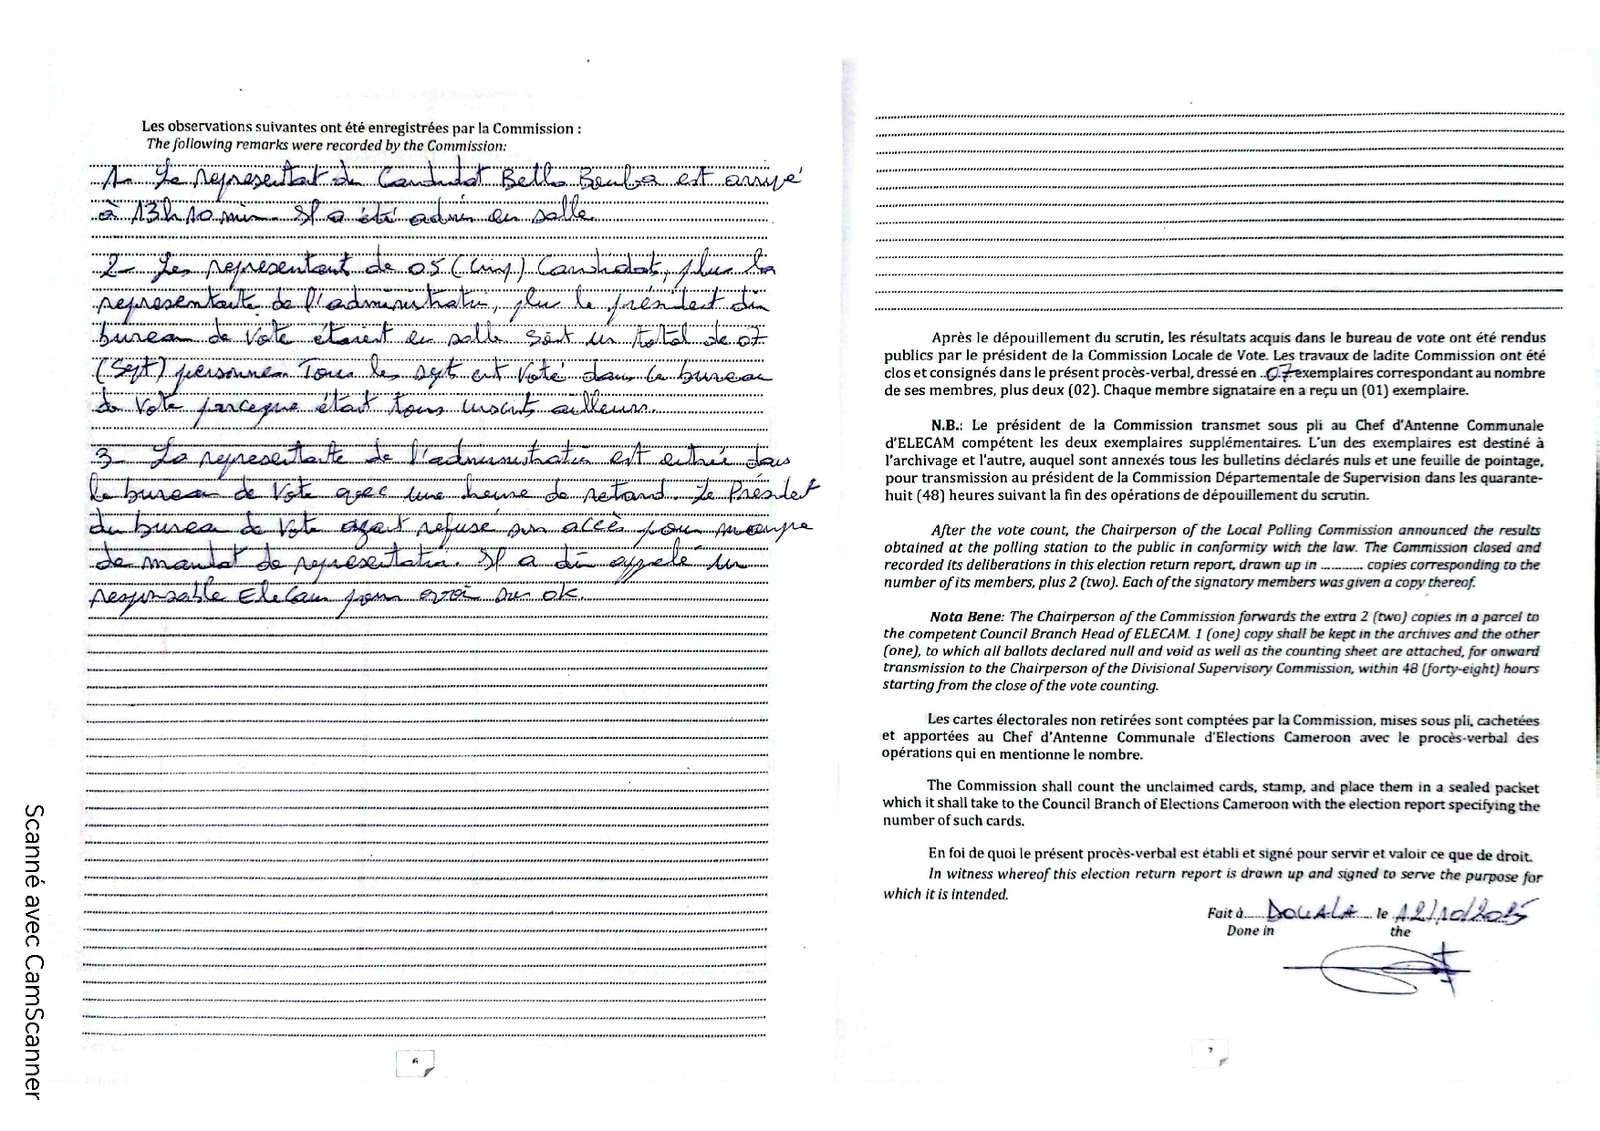 Les observations suivantes ont été enregistrées par la Commission :
The following remarks were recorded by the Commission:
1- Le representat du Candidat Bello Bouba est arrivé
à 13h 10 min. Il a été admis en salle.
2- Les representant de 05 (Cinq) Candidat, plus la
representate de l'administratn, plus le président du
bureau de vote étaient en salle soit un total de 07
(Sept) personne. Tous les sept ont voté dans le bureau
de vote parceque était tous inscrits ailleurs.
3- La representate de l'administration est entrée dans
le bureau de vote avec une heure de retard. Le Président
du bureau de vote ayant refusé son accès pour manque
de mandat de representation. Il a dû appelé un
responsable Elecam pour avoir son ok.
6
Après le dépouillement du scrutin, les résultats acquis dans le bureau de vote ont été rendus
publics par le président de la Commission Locale de Vote. Les travaux de ladite Commission ont été
clos et consignés dans le présent procès-verbal, dressé en ..07 exemplaires correspondant au nombre
de ses membres, plus deux (02). Chaque membre signataire en a reçu un (01) exemplaire.
N.B.: Le président de la Commission transmet sous pli au Chef d'Antenne Communale
d'ELECAM compétent les deux exemplaires supplémentaires. L'un des exemplaires est destiné à
l'archivage et l'autre, auquel sont annexés tous les bulletins déclarés nuls et une feuille de pointage,
pour transmission au président de la Commission Départementale de Supervision dans les quarante-
huit (48) heures suivant la fin des opérations de dépouillement du scrutin.
After the vote count, the Chairperson of the Local Polling Commission announced the results
obtained at the polling station to the public in conformity with the law. The Commission closed and
recorded its deliberations in this election return report, drawn up in ............ copies corresponding to the
number of its members, plus 2 (two). Each of the signatory members was given a copy thereof.
Nota Bene: The Chairperson of the Commission forwards the extra 2 (two) copies in a parcel to
the competent Council Branch Head of ELECAM. 1 (one) copy shall be kept in the archives and the other
(one), to which all ballots declared null and void as well as the counting sheet are attached, for onward
transmission to the Chairperson of the Divisional Supervisory Commission, within 48 (forty-eight) hours
starting from the close of the vote counting.
Les cartes électorales non retirées sont comptées par la Commission, mises sous pli, cachetées
et apportées au Chef d'Antenne Communale d'Elections Cameroon avec le procès-verbal des
opérations qui en mentionne le nombre.
The Commission shall count the unclaimed cards, stamp, and place them in a sealed packet
which it shall take to the Council Branch of Elections Cameroon with the election report specifying the
number of such cards.
En foi de quoi le présent procès-verbal est établi et signé pour servir et valoir ce que de droit.
In witness whereof this election return report is drawn up and signed to serve the purpose for
which it is intended.
Fait à DOUALA le 12/10/2025
Done in the
7
Scanné avec CamScanner